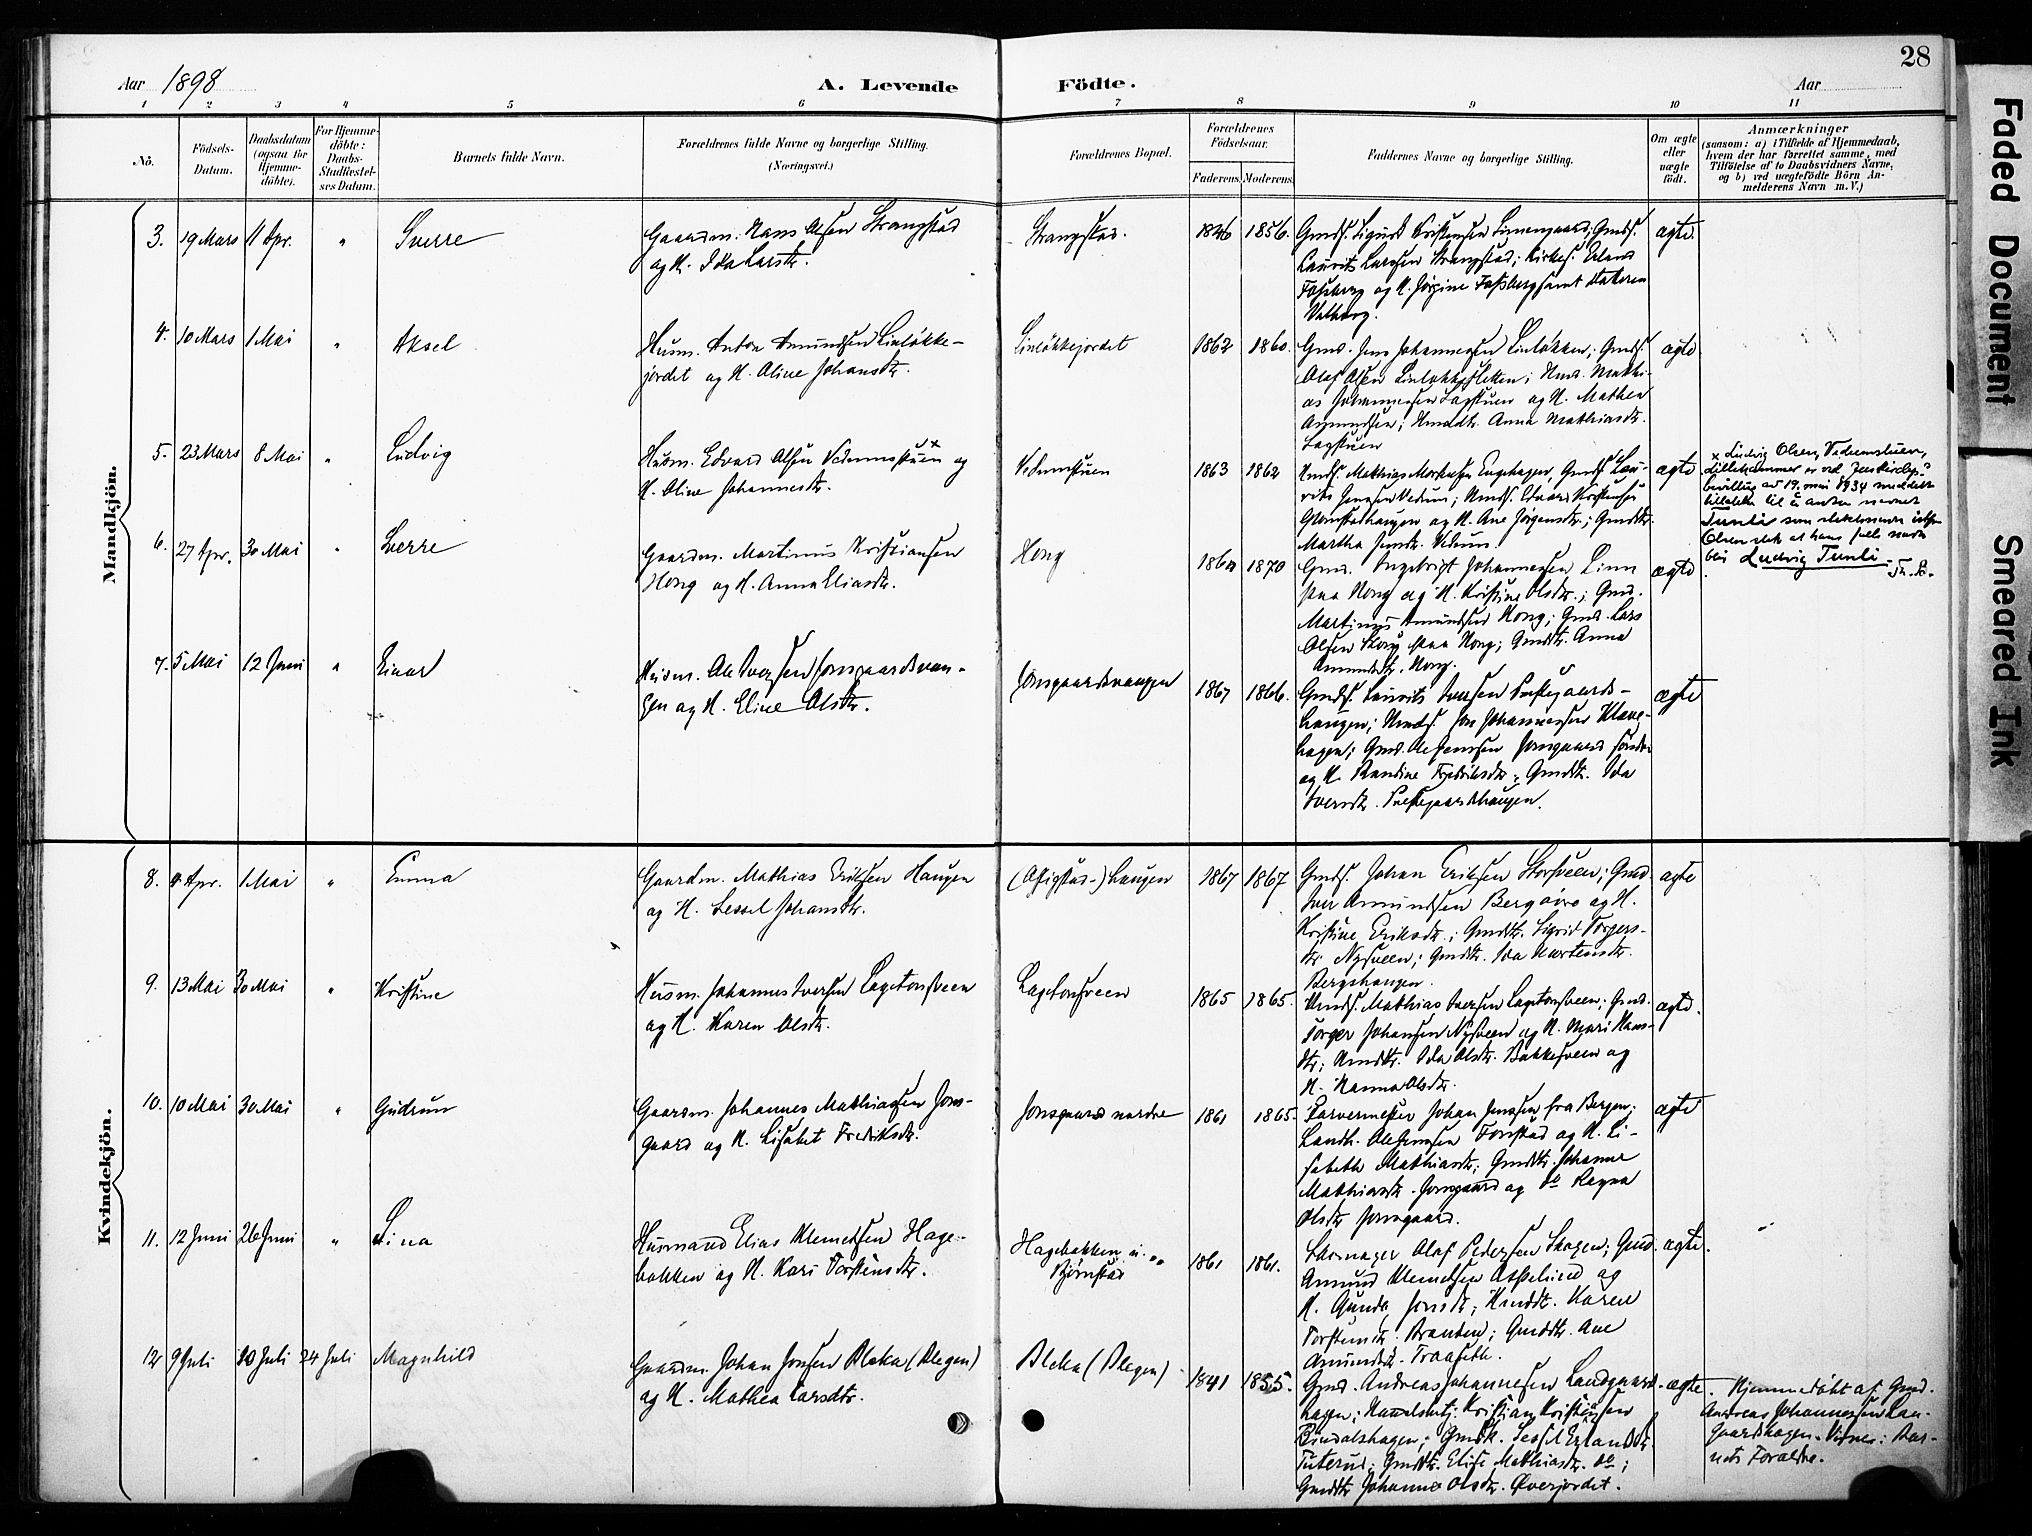 28
Aar 1898
A. Levende
Födte.
Aar
1 2 3 4 5 6 7 8 9 10 11
No.
Födsels-
Datum.
Daabsdatum
(ogsaa for
Hjemme-
döbte).
For Hjemme-
döbte:
Daabs-
Stadfæstel-
ses Datum.
Barnets fulde Navn.
Forældrenes fulde Navne og borgerlige Stilling.
(Næringsvei.)
Forældrenes Bopæl.
Forældrenes
Födselsaar.
Faderens. Moderens.
Faddernes Navne og borgerlige Stilling.
Om ægte
eller
uægte
födt.
Anmærkninger
(saasom: a) i Tilfælde af Hjemmedaab,
hvem der har forrettet samme, med
Tilföielse af to Daabsvidners Navne,
og b) ved uægtefödte Börn An-
melderens Navn m. V.)
Mandkjön.
3. 19 Mars 11 Apr. " Sverre
Gaardm. Hans Olsen Strangstad
og H. Ida Larsdtr.
Strangstad.
1846 1856.
Gmds. Sigurd Kristensen ; Gmds.
Laurits Larsen Strangstad; Kirkes. Erland
Fossberg og H. Jørgine Fossberg samt
ægte.
4. 10 Mars 1 Mai " Aksel
Husm. Anton Amundsen Linløkke-
jordet og H. Oline Johansdtr.
Linløkkejordet
1862 1860.
Gmd. Jens Johannessen Linløkken; Gmds.
Olaf Olsen ; Hmd. Mathi-
as Johannessen Lagstuen og H. Mathea
Amundsen; Hmddtr. Anna Mathiasdtr.
Lagstuen
ægte
5. 23 Mars 8 Mai " Ludvig
Husm. Edvard Olsen Vedumsstuen x og
H. Oline Johannesdtr.
Vedumstuen
1863 1862
Hmds. Mathias Engehagen, Gmds. Lau-
rits Jensen Vedum; Hmds. Edvard Kristensen
og H. Ane Jørgensdtr.; Gmddtr.
Martha Jensdtr. Vedum.
ægte
x Ludvig Olsen, Vedumstuen,
Lillehammer er ved
bevilling av 19. mai 1934 meddelt
tillatelse til å anta navnet
Tunli som slektsnavn istf.
Olsen slik at hans fulle navn
blir Ludvig Tunli
6. 27 Apr. 30 Mai " Sverre
Gaardm. Martinus Kristiansen
Hong og H. Anna Eliasdtr.
Hong
1860 1870
Gmd. Ingebrigt Johannessen Linn
paa Hong og H. Kristine Olsdtr.; Gmd.
Martinus Amundsen Hong; Gmd. Lars
Olsen paa Hong; Gmddtr. Anna
Amundsdtr. Hong.
ægte
7. 5 Mai 12 Juni " Einar
Husm. Ole Iversen Jonsgaardsvan-
gen og H. Eline Olsdtr.
Jonsgaardsvangen
1867 1866.
Gmds. Laurits Iversen Prestegaards-
haugen; Hmds. Jon Johannessen Klæve-
hagen; Gmd. Ole Jensen Jonsgaard søndre
og H. Randine Fredriksdtr.; Gmddtr. Ida
Iversdtr. Prestegaardshaugen.
ægte
Kvindekjön.
8. 4 Apr. 1 Mai " Emma
Gaardm. Mathias Eriksen Haugen
og H. Sessel Johansdtr.
haugen
1867 1867
Gmds. Johan Eriksen Storsveen; Gmd
Iver Amundsen Bergøvre og H.
Kristine Eriksdtr.; Gmddtr. Sigrid Torgers-
dtr. Nysveen; Gmddtr. Ida Mortensdtr.
Bergshaugen.
ægte
9. 13 Mai 30 Mai " Kristine
Husm. Johannes Iversen Lagetonsveen
og H. Karen Olsdtr.
Lagetonsveen
1865 1865.
Hmds. Mathias Iversen Lagetonsveen; Gmd.
Torger Johansen Nysveen og H. Mari Hans-
dtr; Hmddtr. Ida Olsdtr. Bakkesveen og
H. Hanna Olsdtr.
ægte.
10. 10 Mai 30 Mai " Gudrun
Gaardm. Johannes Mathiassen Jons-
gaard og H. Lisabet Fredriksdtr.
Jonsgaard nordre
1861 1865.
Farvermester Johan Jenssen fra Bergen;
Landh. Ole Jenssen Fonstad og H. Li-
sabeth Mathiasdtr; Gmddtr. Johanne
Mathiasdtr. Jonsgaard og do Ragna
Olsdtr Jonsgaard.
ægte
11. 12 Juni 26 Juni " Lina
Husmand Elias Klemetsen Hage-
bakken og H. Kari Torstensdtr.
Hagebakken u.
Bjørnstad
1861 1861.
Skomager Olaf Pedersen Skogen; Gmd.
Amund Klemetsen Asselund og
H. Gunda Jonsdtr; Hmddtr. Karen
Torstensdtr. Branden; Gmddtr. Ane
Amundsdtr. Traaseth.
ægte.
12 9 Juli 10 Juli 24 Juli Magnhild
Gaardm. Johan Jonsen Bleka (Blegen)
og H. Mathea Larsdtr.
Bleka (Blegen)
1841 1855.
Gmd. Andreas Johannesen Landgaards-
hagen; Handelsbetj. Kristian Kristensen
Rindalshagen; Gmdk. Sessel Erlandsdtr.
Tuterud; Gmddtr. Elise Mathiasdtr. do;
Gmddtr Johanne Olsdtr. Øverjordet.
ægte.
Hjemmedøbt af Gmd.
Andreas Johannessen Lan-
gaardshagen. Vidner: Bar-
nets Forældre.
Faded Document
Smeared Ink